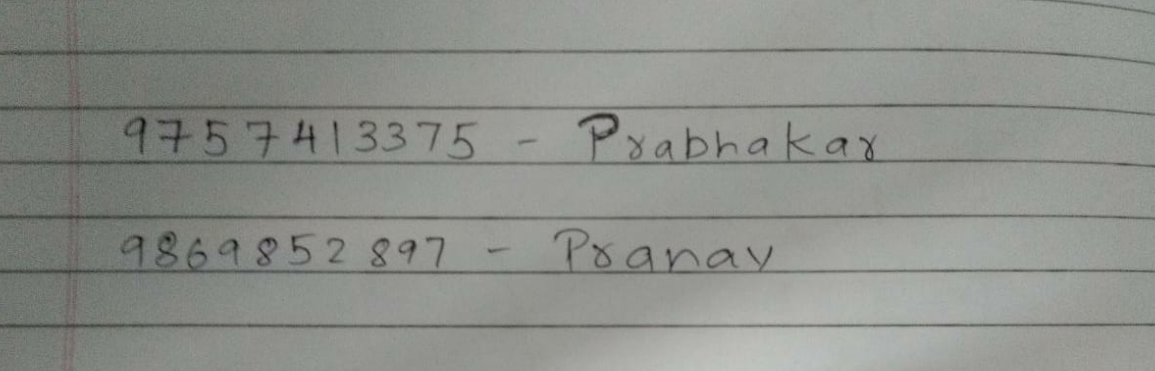 9757413375 - Prabhakar
9869852897 - Pranav